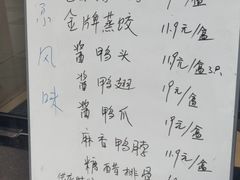 京
金牌蒸饺 11.9元/盒
风
酱鸭头 11.9元/盒3只
味
酱鸭翅 19元/盒
酱鸭爪 19元/盒
麻香鸭脖 11.9元/盒
糖醋排骨